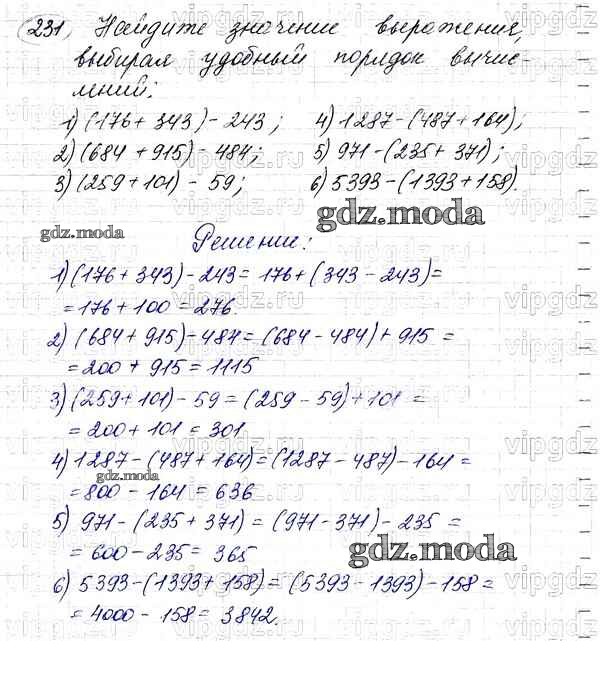 231, Найдите значение выражения,
выбирая удобный порядок вычис-
лений:
1) (176 + 343) - 243;
2) (684 + 915) - 484;
3) (259 + 101) - 59;
4) 1287 - (487 + 164);
5) 971 - (235 + 371);
6) 5393 - (1393 + 158).
gdz.moda
gdz.moda
Решение:
1) (176 + 343) - 243 = 176 + (343 - 243) =
= 176 + 100 = 276.
2) (684 + 915) - 484 = (684 - 484) + 915 =
= 200 + 915 = 1115
3) (259 + 101) - 59 = (259 - 59) + 101 =
= 200 + 101 = 301.
4) 1287 - (487 + 164) = (1287 - 487) - 164 =
gdz.moda
= 800 - 164 = 636
5) 971 - (235 + 371) = (971 - 371) - 235 =
= 600 - 235 = 365
gdz.moda
6) 5393 - (1393 + 158) = (5393 - 1393) - 158 =
= 4000 - 158 = 3842.